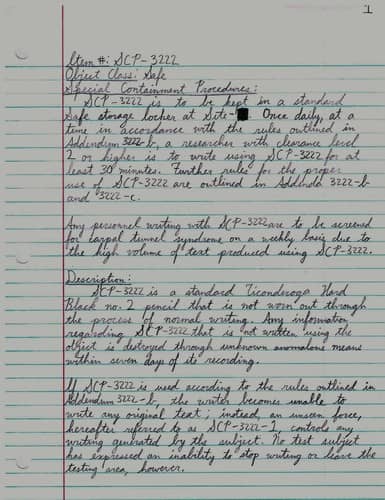 1
Item #: SCP-3222
Object Class: Safe
Special Containment Procedures:
SCP-3222 is to be kept in a standard
safe storage locker at Site-█. Once daily, at a
time in accordance with the rules outlined in
Addendum 3222-b, a researcher with clearance level
2 or higher is to write using SCP-3222 for at
least 30 minutes. Further rules for the proper
use of SCP-3222 are outlined in Addenda 3222-b
and 3222-c.
Any personnel writing with SCP-3222 are to be screened
for carpal tunnel syndrome on a weekly basis due to
the high volume of text produced using SCP-3222.
Description:
SCP-3222 is a standard Ticonderoga Hard
Black no. 2 pencil that is not worn out through
the process of normal writing. Any information
regarding SCP-3222 that is not written using the
object is destroyed through unknown anomalous means
within seven days of its recording.
If SCP-3222 is used according to the rules outlined in
Addendum 3222-b, the writer becomes unable to
write any original text; instead, an unseen force,
hereafter referred to as SCP-3222-1, controls any
writing generated by the subject. No test subject
has expressed an inability to stop writing or leave the
testing area, however.